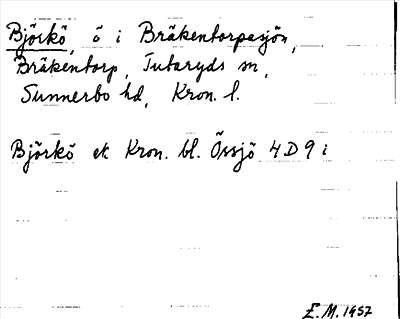 Björkö, ö i Bräkentorpasjön,
Bräkentorp, Tutaryds sn,
Sunnerbo hd, Kron. l.
Björkö ek Kron. bl. Össjö 4 D 9 i
E. M. 1957